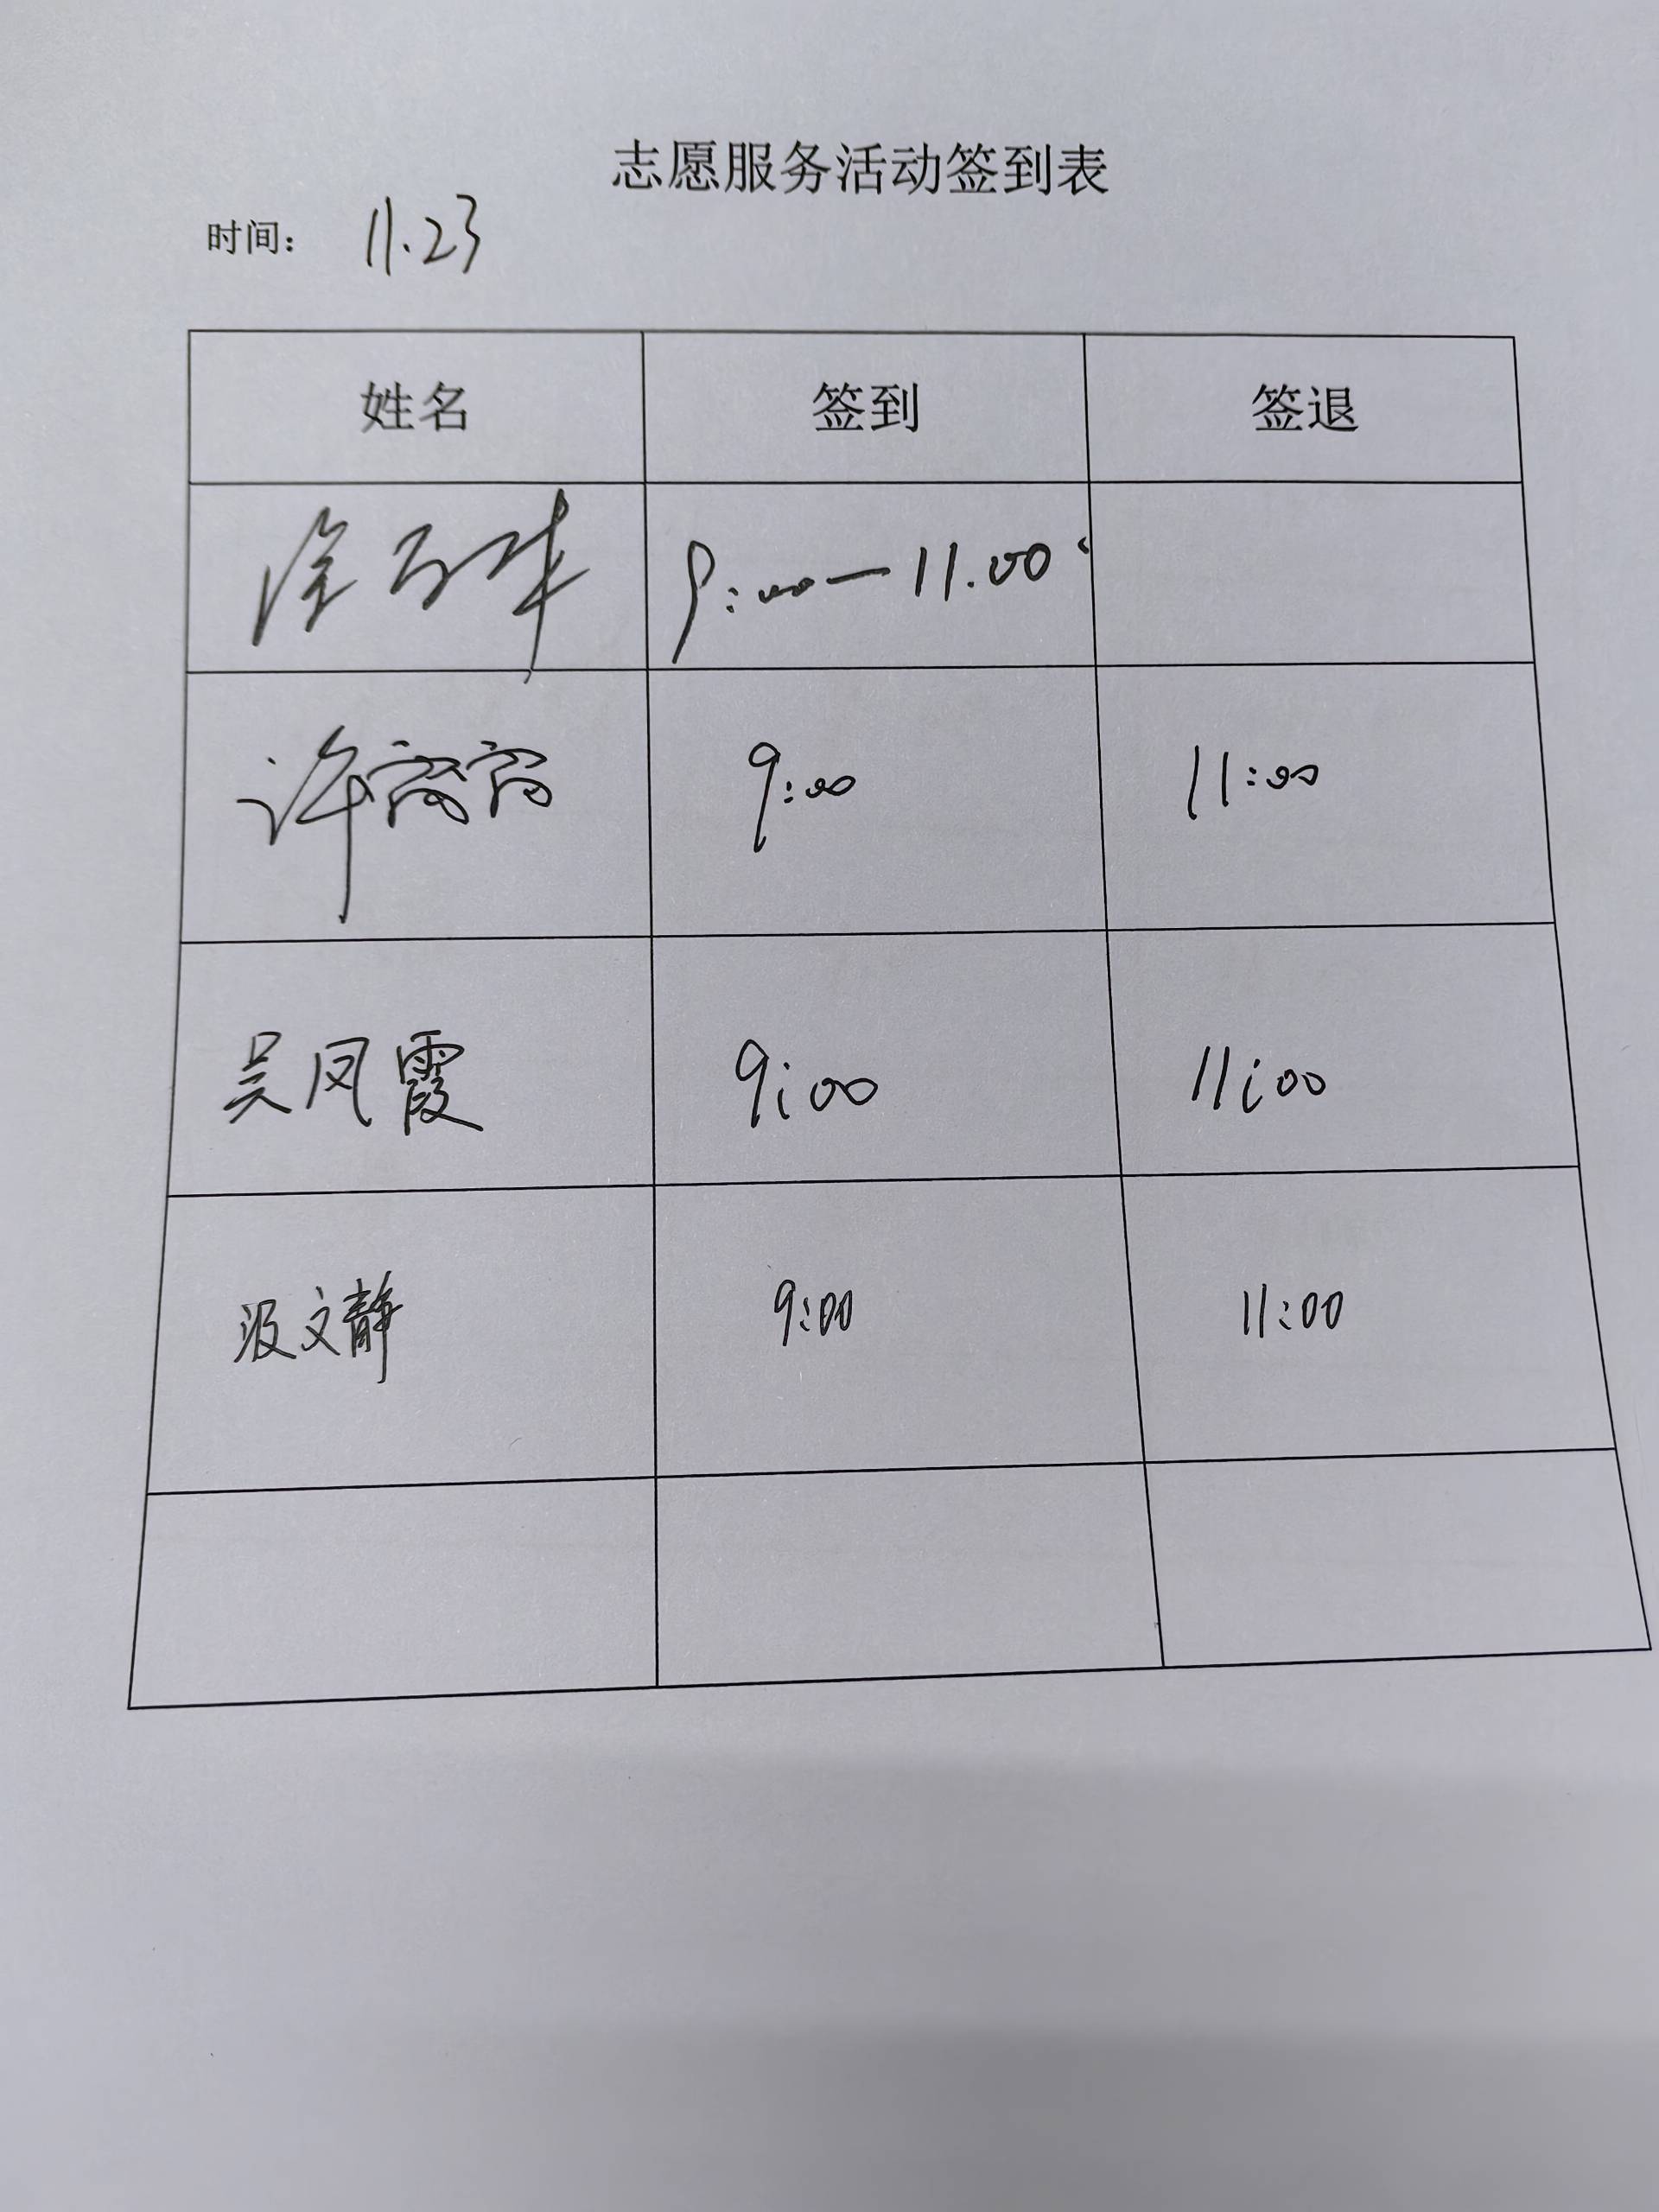 志愿服务活动签到表
时间： 11.23
姓名 签到 签退
9:00—11.00
许 9:00 11:00
吴凤霞 9:00 11:00
汲文静 9:00 11:00